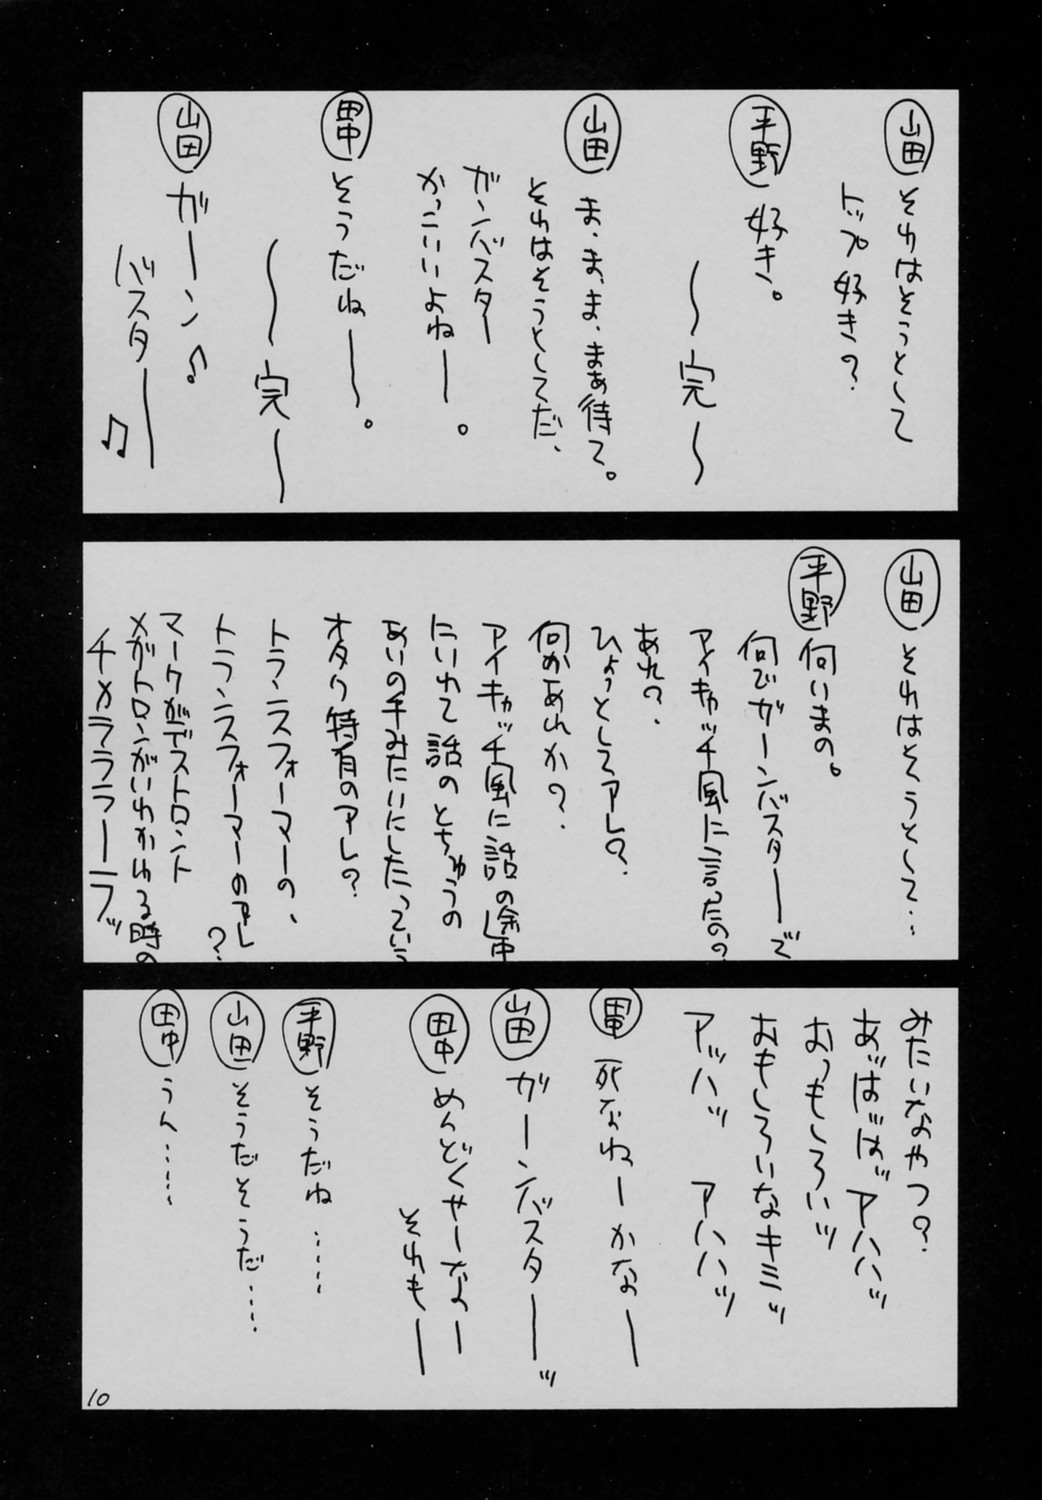 山田 それはそうとして
トップ好き？
平野 好き。
〜完〜
山田 ま、ま、ま、まぁ待て。
それはそうとしてだ、
ガンバスター
かっこいいよねー。
田中 そうだねー。
〜完〜
山田 ガーン♪
バスター♫
山田 それはそうとして…
平野 何いまの。
何でガーンバスターーで
アイキャッチ風に言ったの？
あれ？、
ひょっとしてアレ？
何かあれか？、
アイキャッチ風に話の途中
にいれて話のとちゅうの
あいの手みたいにしたっていう
オタク特有のアレ？
トランスフォーマーの、
トランスフォーマーのアレ？
マークがデストロント
メガトロンがいれかわる時の
チャラララーラッ
みたいなやつ？
あッはッはッアハハッ
おっもしろいッ
おもしろいなキミッ
アッハッ アハハッ
田中 死なねーかなー
山田 ガーンバスターーッ
田中 めんどくせーなー
それもー
平野 そうだね……
山田 そうだそうだ……
田中 うん……
10